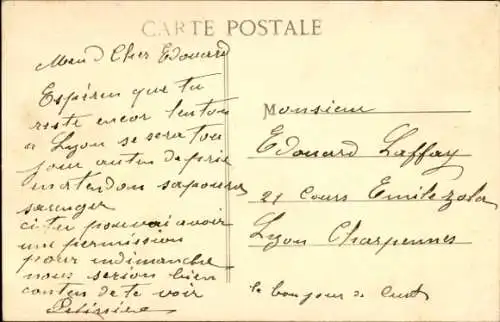 CARTE POSTALE
Mon Cher Edouard
Espéren que tu
reste encor lenton
a Lyon se sera tou
jour auten de pris
inatendon sapoura
saranger
ci tu pouvai avoir
une permission
pour indimanche
nous serion bien
conten de te voir
Monsieur
Edouard Laffay
21 Cours Emile zola
Lyon Charpennes
le bonjour de